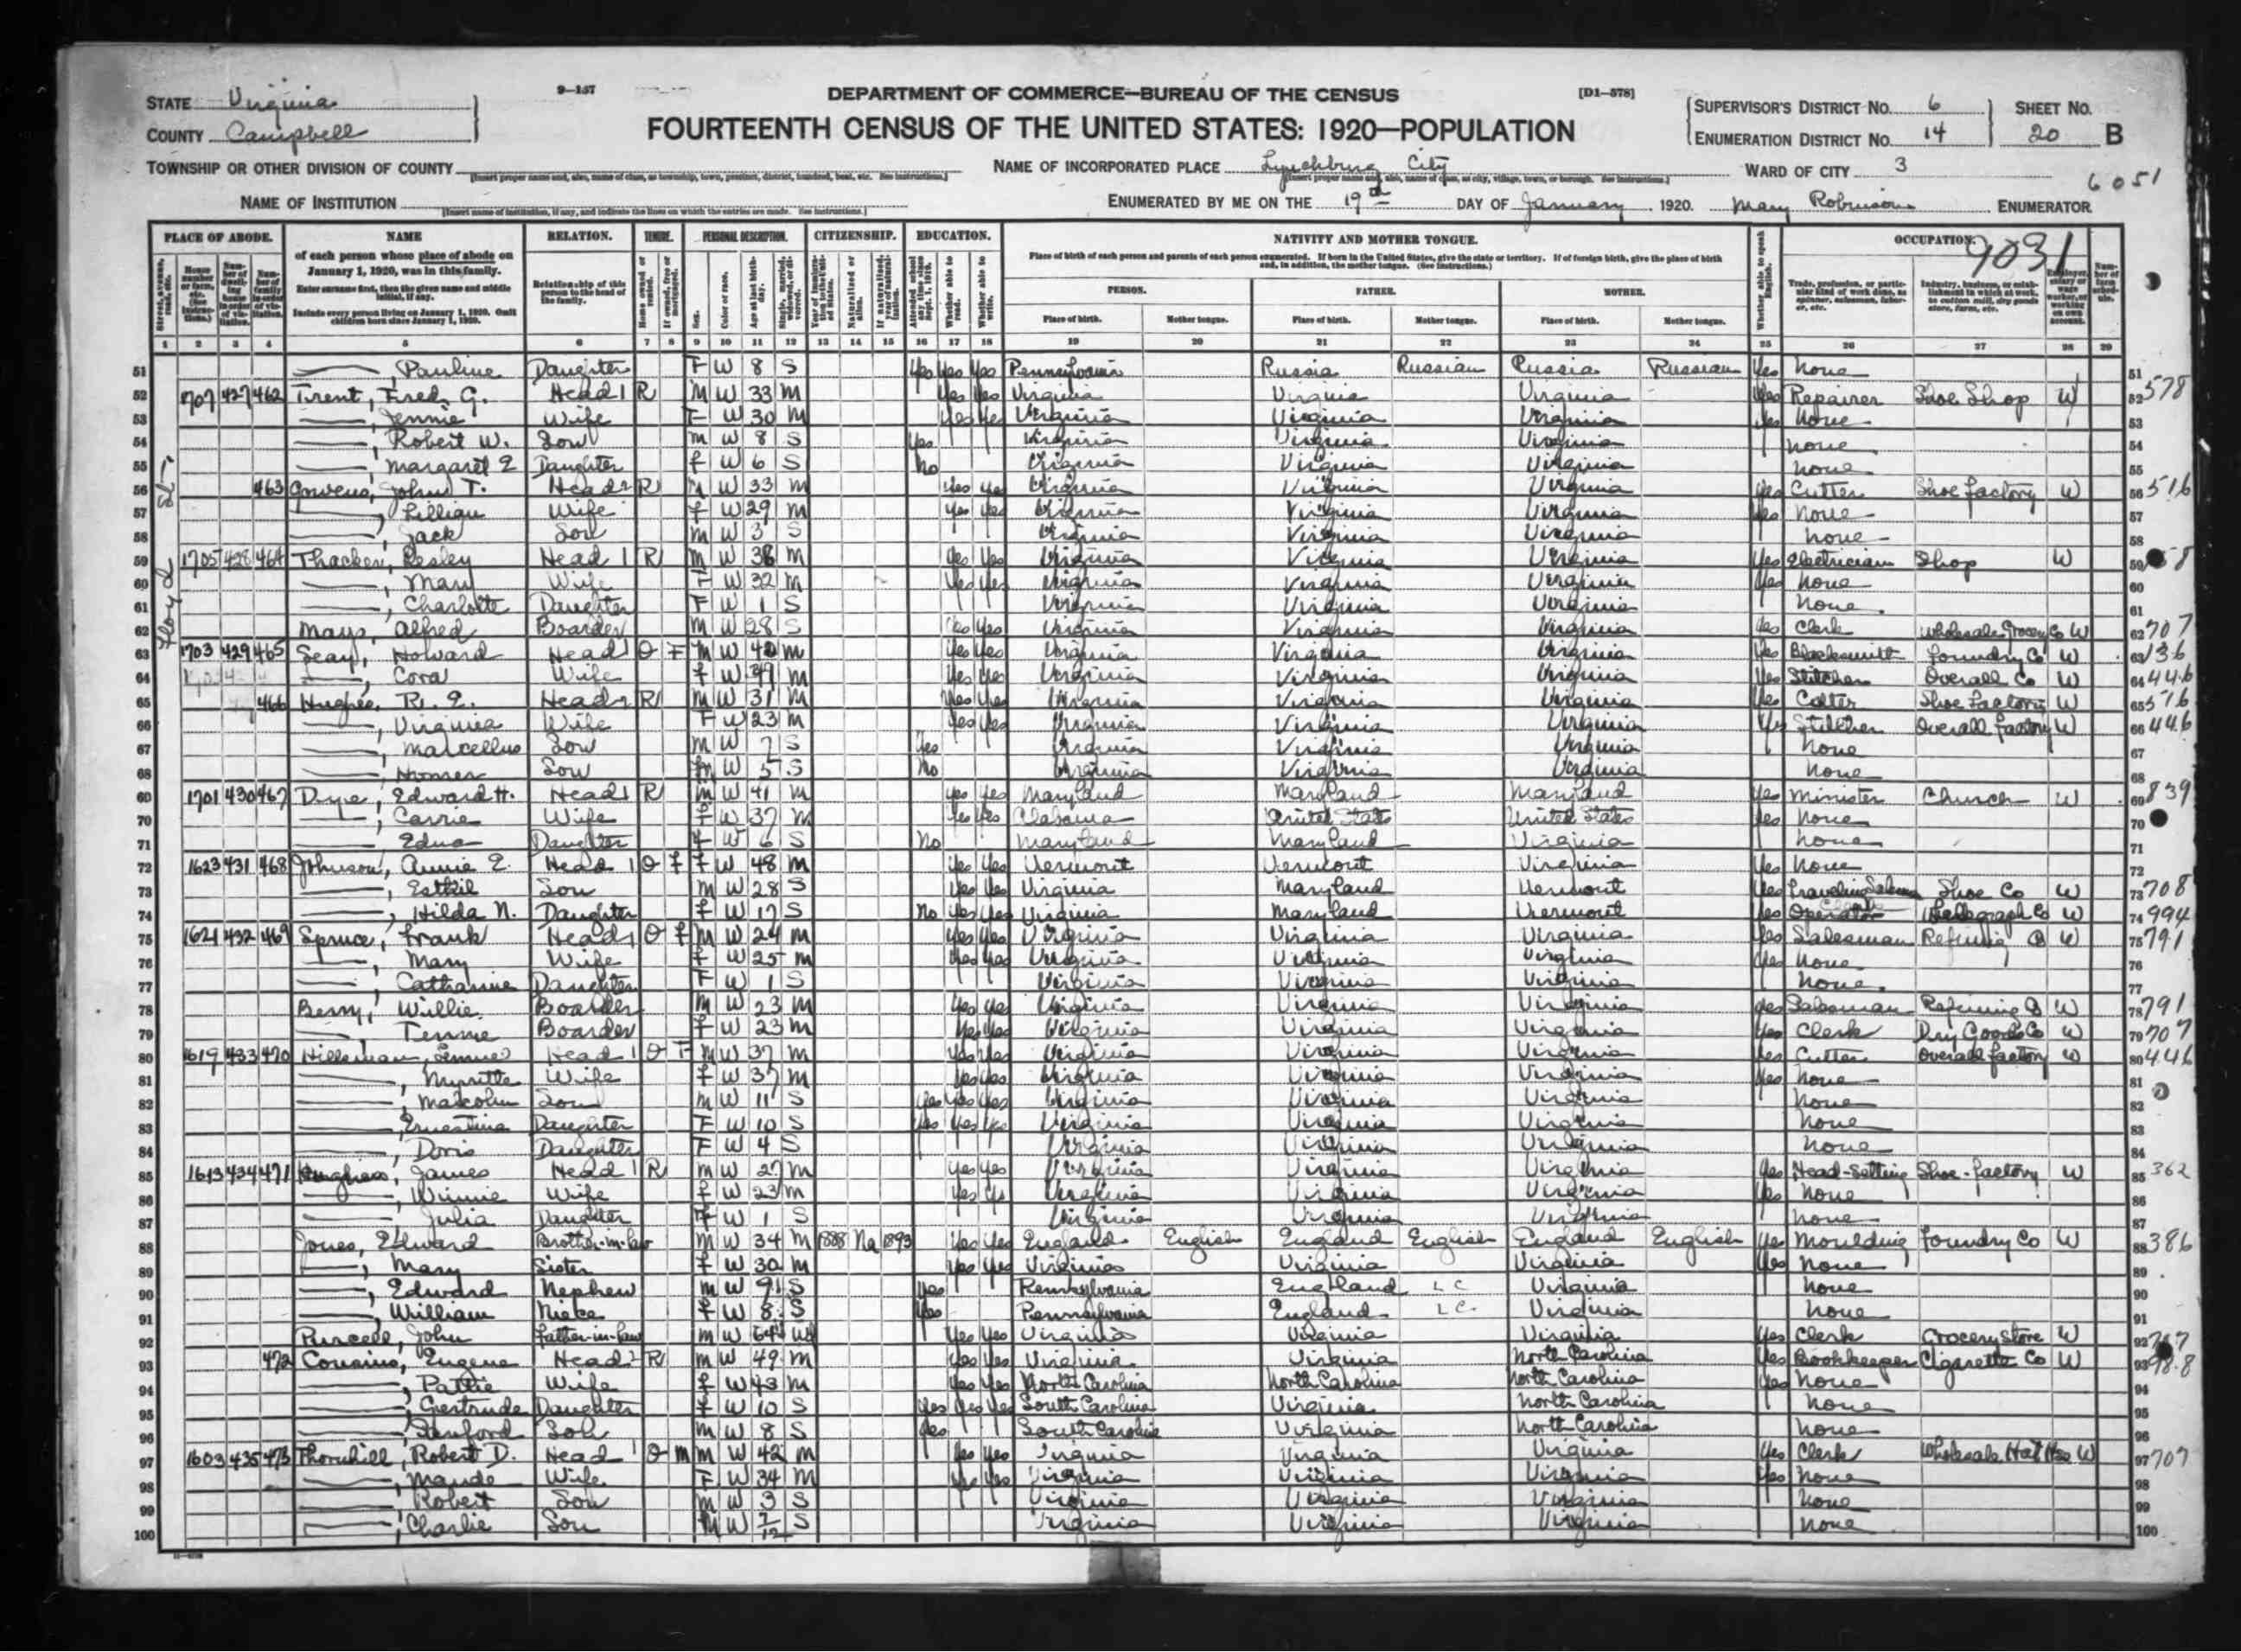 9—157
DEPARTMENT OF COMMERCE—BUREAU OF THE CENSUS
[D1—578]
STATE Virginia
COUNTY Campbell
FOURTEENTH CENSUS OF THE UNITED STATES: 1920—POPULATION
SUPERVISOR'S DISTRICT NO. 6
ENUMERATION DISTRICT NO. 14
SHEET NO. 20 B
TOWNSHIP OR OTHER DIVISION OF COUNTY
NAME OF INCORPORATED PLACE Lynchburg City
WARD OF CITY 3
6051
NAME OF INSTITUTION
ENUMERATED BY ME ON THE 19th DAY OF January, 1920. Mary Robinson ENUMERATOR
PLACE OF ABODE. NAME RELATION. TENURE. PERSONAL DESCRIPTION. CITIZENSHIP. EDUCATION. NATIVITY AND MOTHER TONGUE. OCCUPATION. 9031
of each person whose place of abode on January 1, 1920, was in this family.
Enter surname first, then the given name and middle initial, if any.
Include every person living on January 1, 1920. Omit children born since January 1, 1920.
Relationship of this person to the head of the family.
Place of birth of each person and parents of each person enumerated. If born in the United States, give the state or territory. If of foreign birth, give the place of birth and, in addition, the mother tongue. (See Instructions.)
PERSON. FATHER. MOTHER.
Place of birth. Mother tongue. Place of birth. Mother tongue. Place of birth. Mother tongue.
1 2 3 4 5 6 7 8 9 10 11 12 13 14 15 16 17 18 19 20 21 22 23 24 25 26 27 28 29
Floyd St
51 Pauline Daughter F W 8 S Yes Yes Yes Pennsylvania Russia Russian Russia Russian Yes None 51
52 1707 427 462 Trent, Fred G. Head 1 R M W 33 M Yes Yes Virginia Virginia Virginia Yes Repairer Shoe Shop W 52 578
53 Jennie Wife F W 30 M Yes Yes Virginia Virginia Virginia Yes None 53
54 Robert W. Son M W 8 S Yes Virginia Virginia Virginia None 54
55 Margaret E Daughter F W 6 S No Virginia Virginia Virginia None 55
56 463 Owens, John T. Head 2 R M W 33 M Yes Yes Virginia Virginia Virginia Yes Cutter Shoe Factory W 56 516
57 Lillian Wife F W 29 M Yes Yes Virginia Virginia Virginia Yes None 57
58 Jack Son M W 3 S Virginia Virginia Virginia None 58
59 1705 428 464 Thacker, Lesley Head 1 R M W 38 M Yes Yes Virginia Virginia Virginia Yes Electrician Shop W 59
60 Mary Wife F W 32 M Yes Yes Virginia Virginia Virginia Yes None 60
61 Charlotte Daughter F W 1 S Virginia Virginia Virginia None 61
62 Mays, Alfred Boarder M W 28 S Yes Yes Virginia Virginia Virginia Yes Clerk Wholesale Grocery Co W 62 707
63 1703 429 465 Seay, Howard Head 1 O F M W 42 M Yes Yes Virginia Virginia Virginia Yes Blacksmith Foundry Co W 63 136
64 Cora Wife F W 39 M Yes Yes Virginia Virginia Virginia Yes Stitcher Overall Co W 64 446
65 466 Hughes, R. E. Head 2 R M W 31 M Yes Yes Virginia Virginia Virginia Yes Cutter Shoe Factory W 65 516
66 Virginia Wife F W 23 M Yes Yes Virginia Virginia Virginia Yes Stitcher Overall Factory W 66 446
67 Marcellus Son M W 7 S Yes Virginia Virginia Virginia None 67
68 Homer Son M W 5 S No Virginia Virginia Virginia None 68
69 1701 430 467 Dye, Edward H. Head 1 R M W 41 M Yes Yes Maryland Maryland Maryland Yes Minister Church W 69 839
70 Carrie Wife F W 37 M Yes Yes Alabama United States United States Yes None 70
71 Edna Daughter F W 6 S No Maryland Maryland Virginia None 71
72 1623 431 468 Johnson, Annie E. Head 1 O F F W 48 M Yes Yes Vermont Vermont Virginia Yes None 72
73 Esthil Son M W 28 S Yes Yes Virginia Maryland Vermont Yes Traveling Salesman Shoe Co W 73 708
74 Hilda N. Daughter F W 17 S No Yes Yes Virginia Maryland Vermont Yes Operator Telegraph Co W 74 994
75 1621 432 469 Spruce, Frank Head 1 O F M W 24 M Yes Yes Virginia Virginia Virginia Yes Salesman Refining Co W 75 791
76 Mary Wife F W 25 M Yes Yes Virginia Virginia Virginia Yes None 76
77 Catharine Daughter F W 1 S Virginia Virginia Virginia None 77
78 Berry, Willie Boarder M W 23 M Yes Yes Virginia Virginia Virginia Yes Salesman Refining Co W 78 791
79 Tennie Boarder F W 23 M Yes Yes Virginia Virginia Virginia Yes Clerk Dry Goods Co W 79 707
80 1619 433 470 Hillsman, Head 1 O F M W 37 M Yes Yes Virginia Virginia Virginia Yes Cutter Overall Factory W 80 446
81 Myrtle Wife F W 37 M Yes Yes Virginia Virginia Virginia Yes None 81
82 Malcolm Son M W 11 S Yes Yes Yes Virginia Virginia Virginia None 82
83 Ernestina Daughter F W 10 S Yes Yes Yes Virginia Virginia Virginia None 83
84 Doris Daughter F W 4 S Virginia Virginia Virginia None 84
85 1613 434 471 Hughes, James Head 1 R M W 27 M Yes Yes Virginia Virginia Virginia Yes Head-Setting Shoe-factory W 85 362
86 Winnie Wife F W 23 M Yes Yes Virginia Virginia Virginia Yes None 86
87 Julia Daughter F W 1 S Virginia Virginia Virginia None 87
88 Jones, Edward Brother-in-law M W 34 M 1888 Na 1893 Yes Yes England English England English England English Yes Moulding Foundry Co W 88 386
89 Mary Sister F W 30 M Yes Yes Virginia Virginia Virginia Yes None 89
90 Edward Nephew M W 9 S Yes Pennsylvania England L C Virginia None 90
91 William Niece F W 8 S Yes Pennsylvania England L C Virginia None 91
92 Purcell, John Father-in-law M W 64 Wd Yes Yes Virginia Virginia Virginia Yes Clerk Grocery Store W 92 767
93 472 Cousins, Eugene Head 2 R M W 49 M Yes Yes Virginia Virginia North Carolina Yes Bookkeeper Cigarette Co W 93
94 Pattie Wife F W 43 M Yes Yes North Carolina North Carolina North Carolina Yes None 94
95 Gertrude Daughter F W 10 S Yes Yes Yes South Carolina Virginia North Carolina None 95
96 Sanford Son M W 8 S Yes South Carolina Virginia North Carolina None 96
97 1603 435 473 Thornhill, Robert D. Head 1 O M M W 42 M Yes Yes Virginia Virginia Virginia Yes Clerk Wholesale Hat Hse W 97 707
98 Maude Wife F W 34 M Yes Yes Virginia Virginia Virginia Yes None 98
99 Robert Son M W 3 S Virginia Virginia Virginia None 99
100 Charlie Son M W 7/12 S Virginia Virginia Virginia None 100